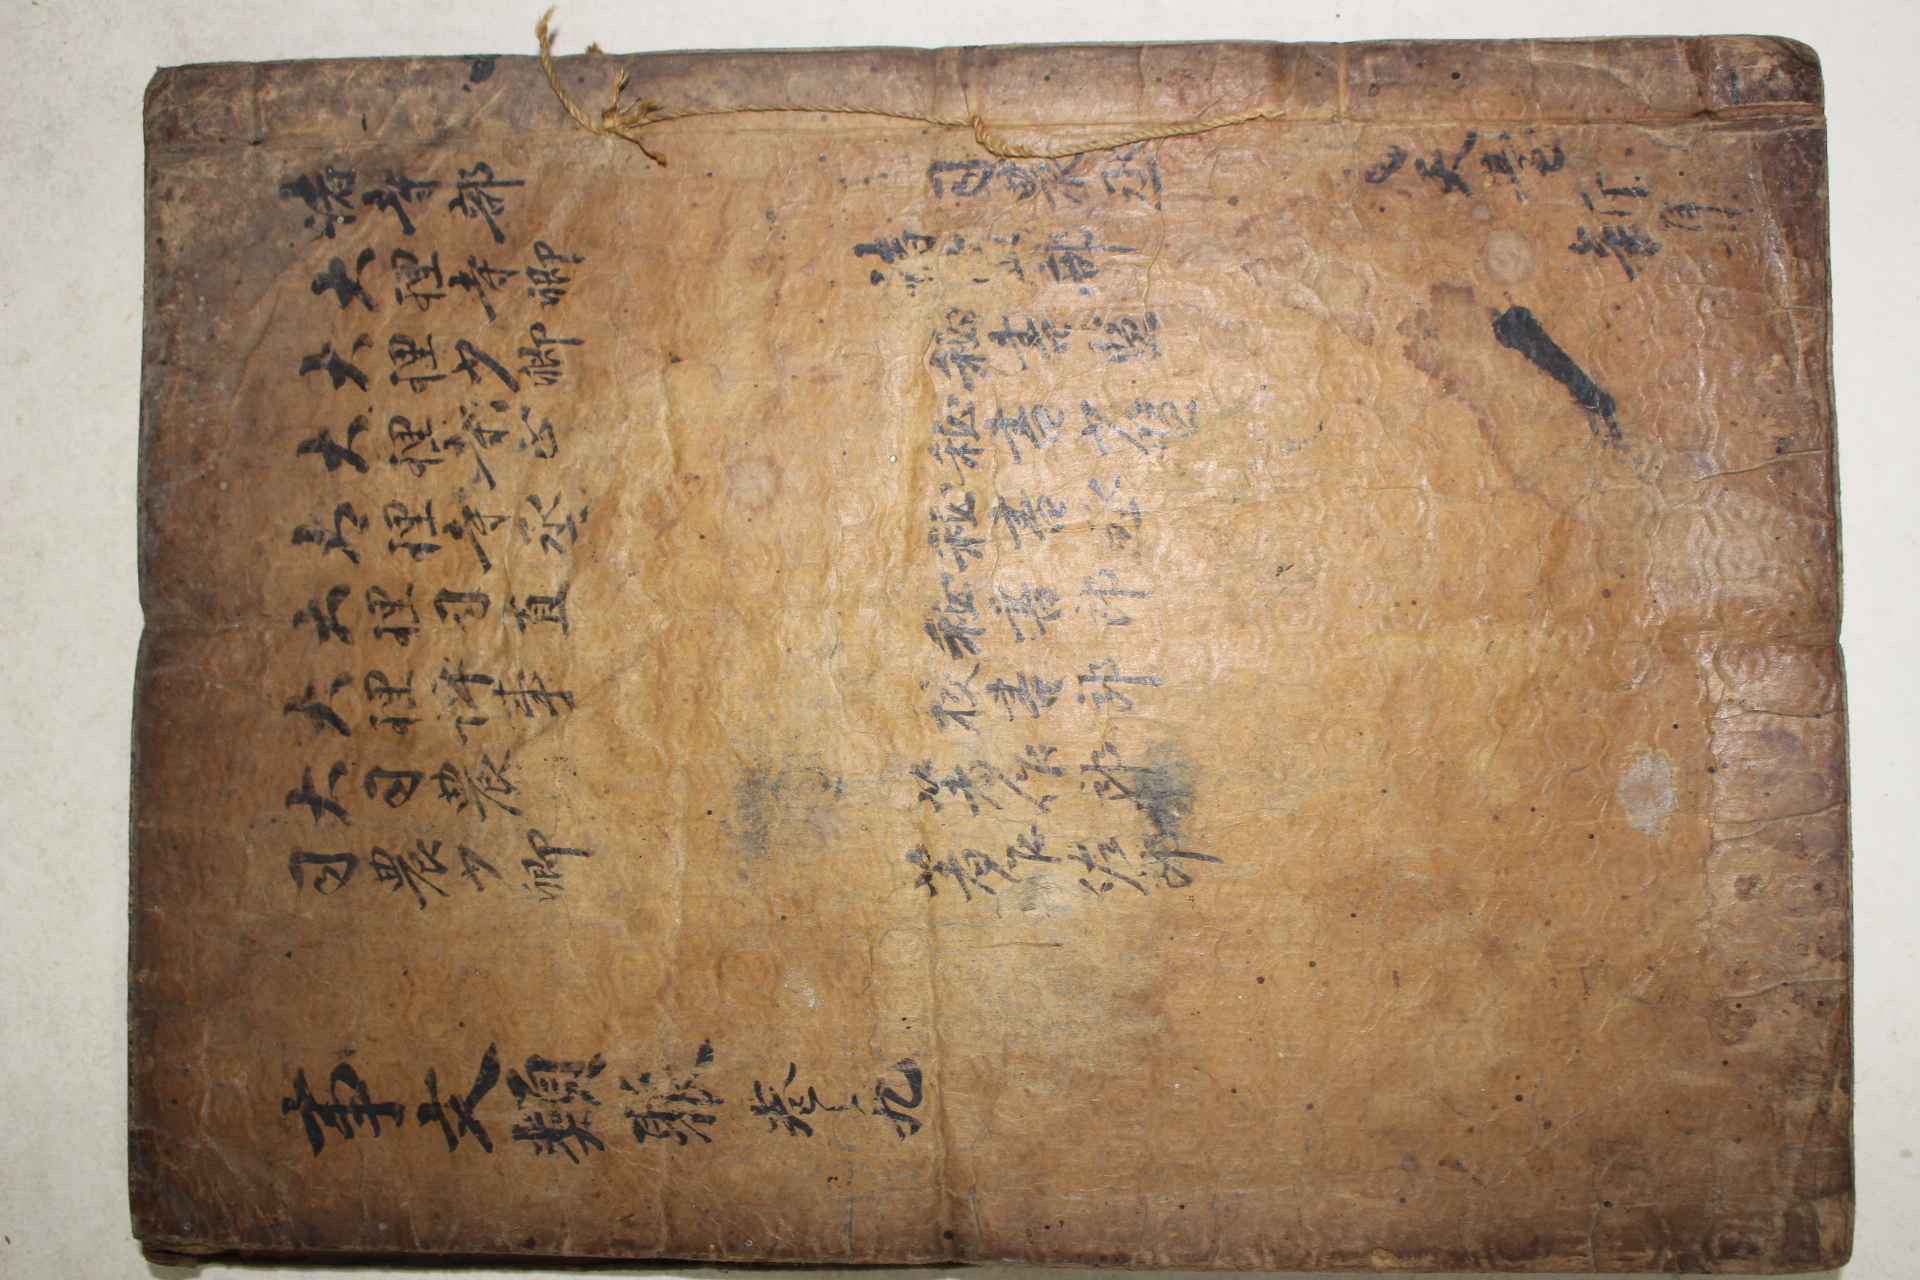 諸寺部
大理寺卿
大理少卿
大理寺正
大理寺丞
大理司直
大理評事
大司農
司農少卿
司農丞
諸監部
秘書監
秘書少監
秘書丞
秘書郎
校書郎
著作郎
著作佐郎
天臺
新集
事文類聚 卷之九